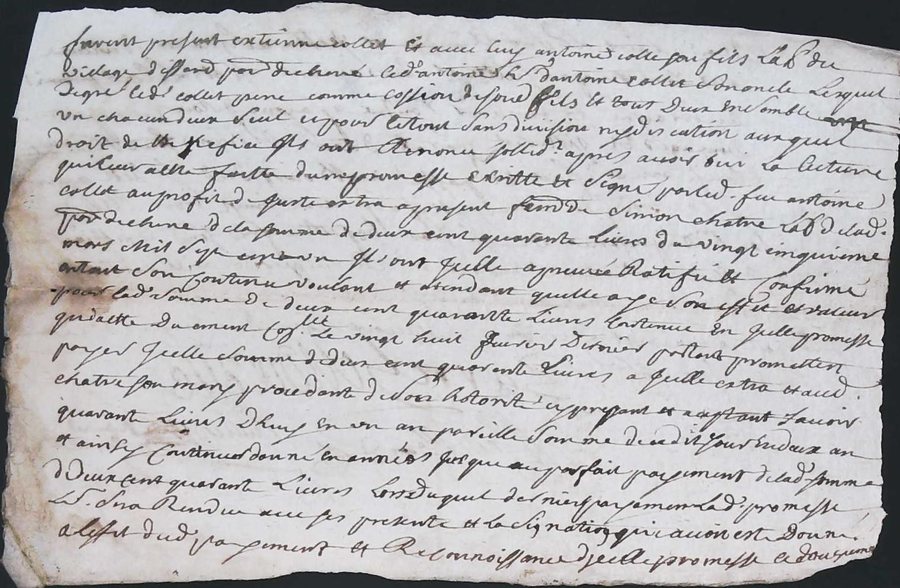 furent present extienne collet et avec luy antoine collet son fils Lab.r du
village dessard par.sse dechene led. antoine h.r dantoine collet son oncle Lesquel
Degré led. collet pere comme cossion desond. fils et tout Deux Ensemble
un chacun deux seul et pour letout sans division ny discution auxquel
droit de Benefice ils ont Renoncé solled.t apres avoir oui La lecture
quileur a esté faitte dune promesse Escritte et signé par led. feu antoine
collet au profit de extra a present fem.e de Simon chatre Lab.r delad.
par.sse dechene de la somme de deux cent quarante Livres du vingt cinquieme
mars mil sept cent un Ils ont Jcelle apreuvée Ratifié et Confirmé
en tout son Contenu voulant et atendant quelle aye son effet et valeur
pour lad. somme de deux cent quarante Livres Contenue En Jcelle promesse
quidatte Duement Con.llée Le vingt huit feuvrier Dernier portant promettent
payer Jcelle somme dedeux cent quarente Livres a Jcelle extra et aud.
chatre son mary procedant desous hotorité cy present et aceptant Savoir
quarante Livres Dhuy En un an pareille somme decedit Jour Endeux an
et ainsy Continuer danné en années Jusque au parfait payement delad. somme
dedeux cent quarante Livres Lors duquel dernier payement Lad. promesse
sera Rendue avec ses presente et la signation qui avoit esté Donné
a leffet dud. payement et Reconnoissance djcelle promesse